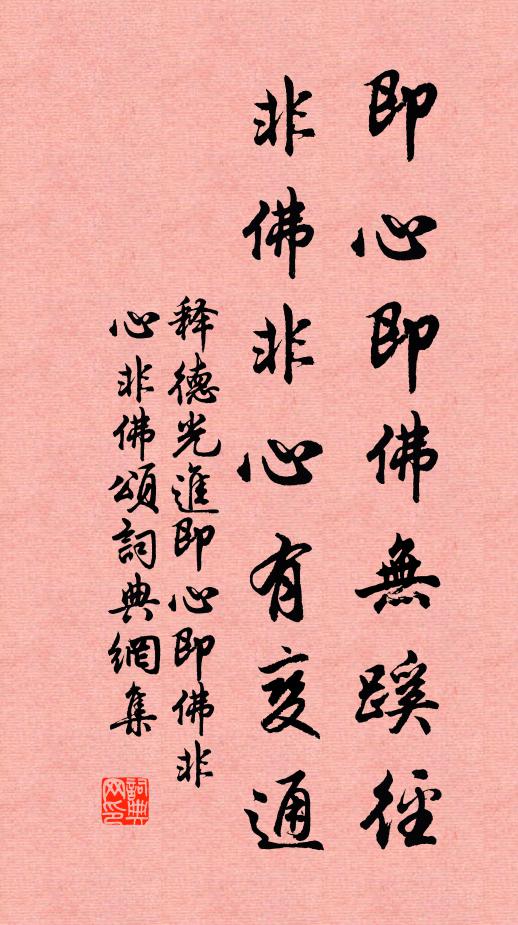 即心即佛無蹊徑
非佛非心有变通
释德光進即心即佛非
心非佛頌詞典網集
詞典
网印